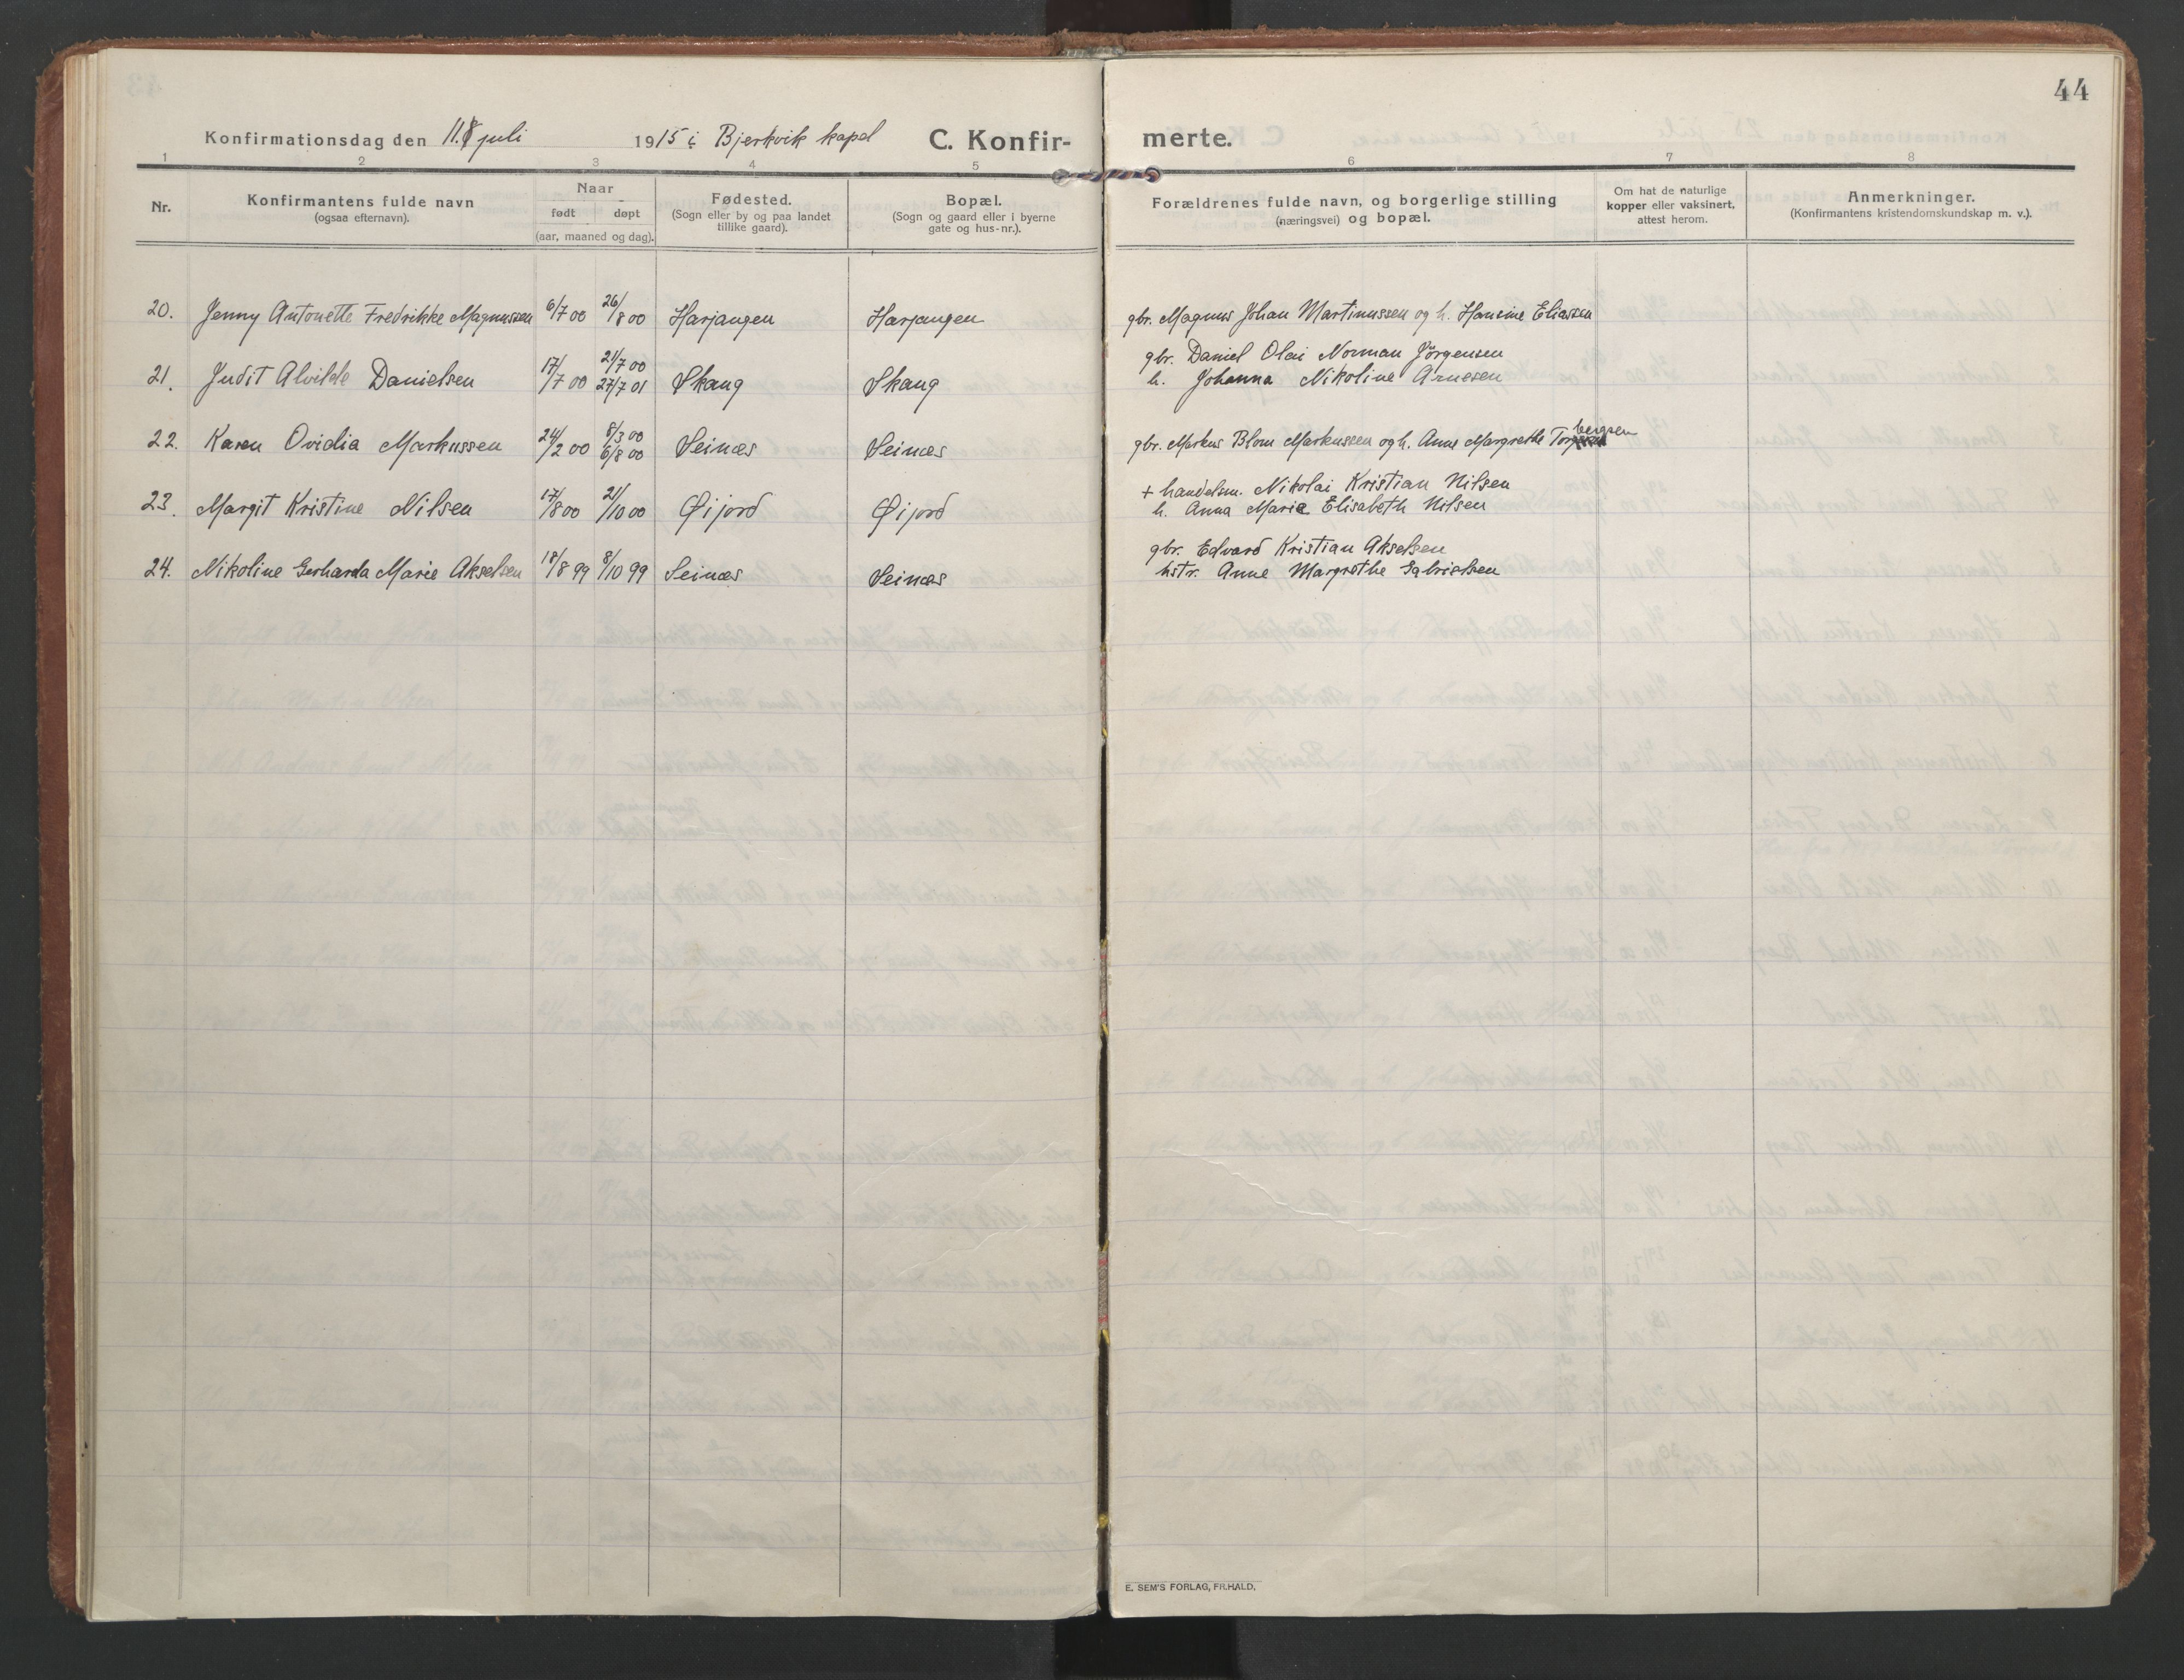 44
Konfirmationsdag den 11. juli 1915 i Bjerkvik kapel C. Konfir- merte.
1 2 3 4 5 6 7 8
Nr.
Konfirmantens fulde navn
(ogsaa efternavn).
Naar
født døpt
(aar, maaned og dag).
Fødested.
(Sogn eller by og paa landet
tillike gaard).
Bopæl.
(Sogn og gaard eller i byerne
gate og hus-nr.).
Forældrenes fulde navn, og borgerlige stilling
(næringsvei) og bopæl.
Om hat de naturlige
kopper eller vaksinert,
attest herom.
Anmerkninger.
(Konfirmantens kristendomskundskap m. v.).
20. Jenny Antonette Fredrikke Magnussen 6/7 00 26/8 00 Harjangen Harjangen gbr. Magnus Johan Martinussen og h. Hansine Eliassen
21. Judit Alvilde Danielsen 17/7 00 21/7 00 27/7 01 Skaug Skaug gbr. Daniel Olai Norman Jörgensen
h. Johanna Nikoline Arnesen
22. Karen Ovidia Markussen 24/2 00 8/3 00 6/8 00 Seinæs Seinæs gbr. Markus Blom Markussen og h. Anne Margrethe Torbergsen
23. Margit Kristine Nilsen 17/8 00 21/10 00 Øijord Øijord + handelsm. Nikolai Kristian Nilsen
h. Anna Marie Elisabeth Nilsen
24. Nikoline Gerharda Marie Akselsen 18/8 99 8/10 99 Seinæs Seinæs gbr. Edvard Kristian Akselsen
hstr. Anne Margrethe Gabrielsen
E. SEM'S FORLAG, FR.HALD.